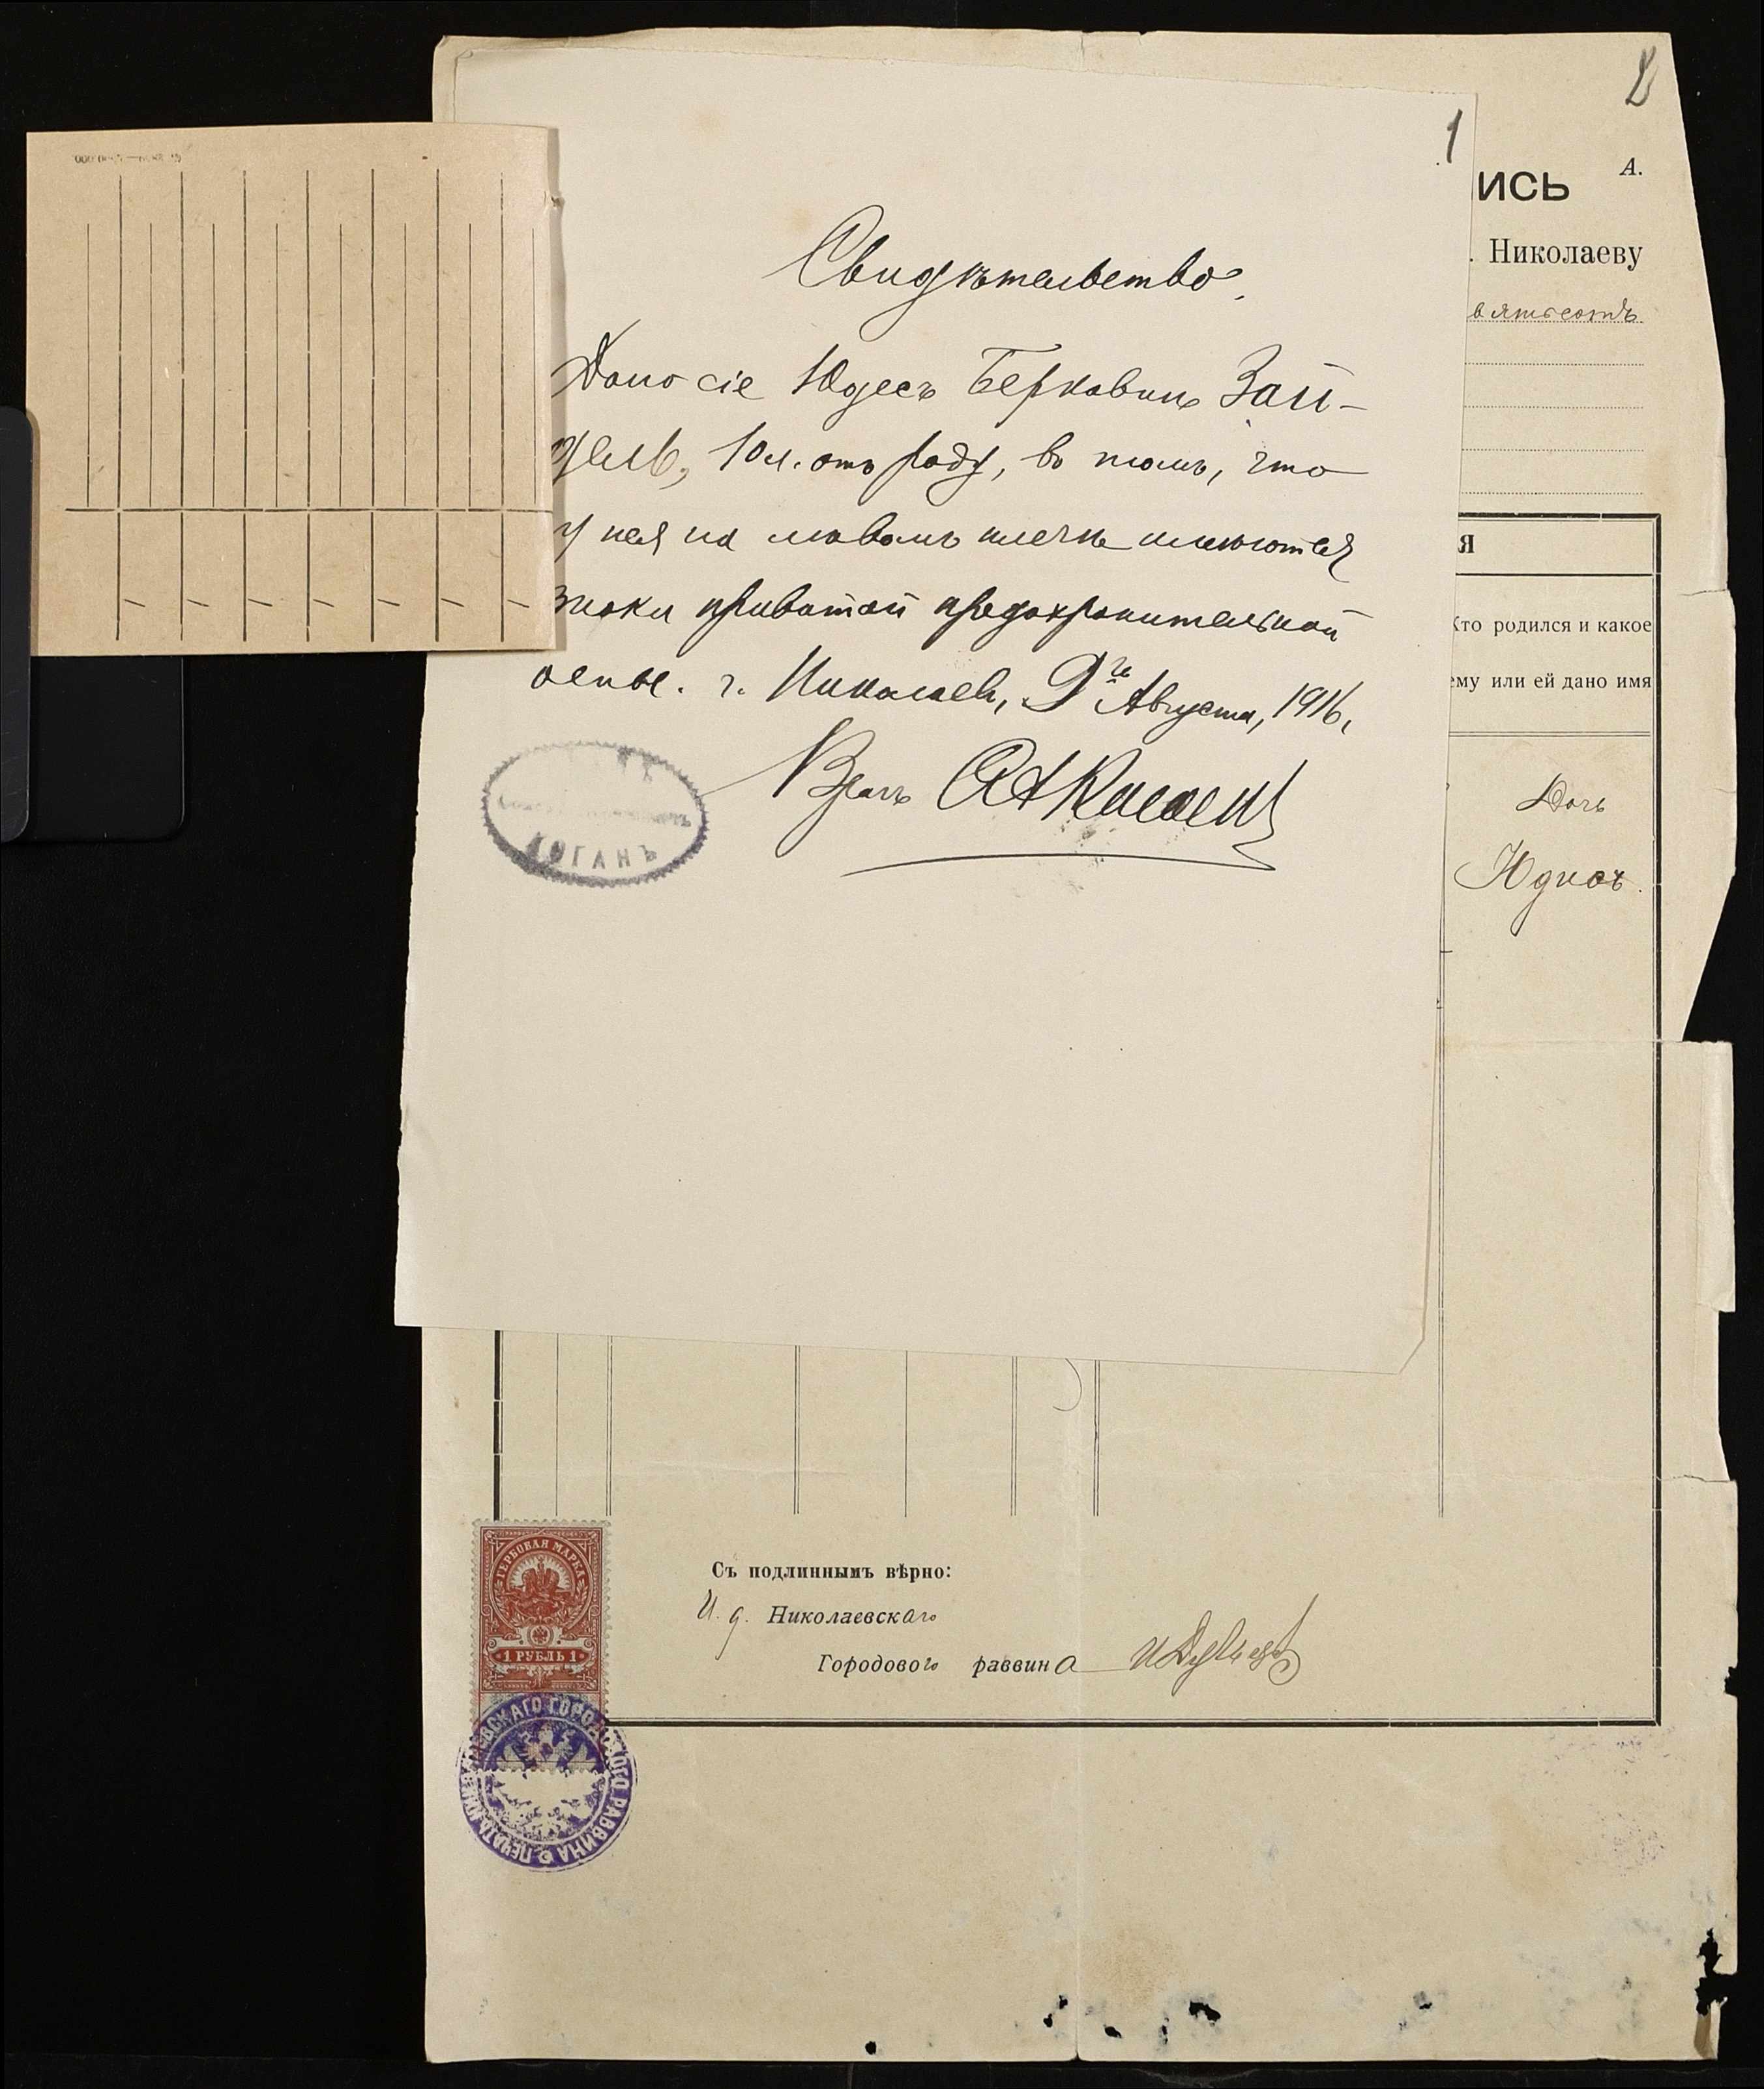 2
1
А.
ИСЬ
. Николаеву
вятьсотъ
Свидѣтельство.
Дано сіе Юдесъ Берковнѣ Зай-
дель, 10 л. отъ роду, въ томъ, что
у нея на лѣвомъ плечѣ имѣются
знаки привитой предохранительной
оспы. г. Николаевъ, 9го Августа, 1916,
Врачъ
КОГАНЪ
Я
Кто родился и какое
ему или ей дано имя
Дочь
Юдисъ.
ГЕРБОВАЯ МАРКА
1 РУБЛЬ 1
Съ подлиннымъ вѣрно:
И. д. Николаевскаго
Городового раввина
ПЕЧАТЬ НИКОЛАЕВСКАГО ГОРОДСКОГО РАВВИНА